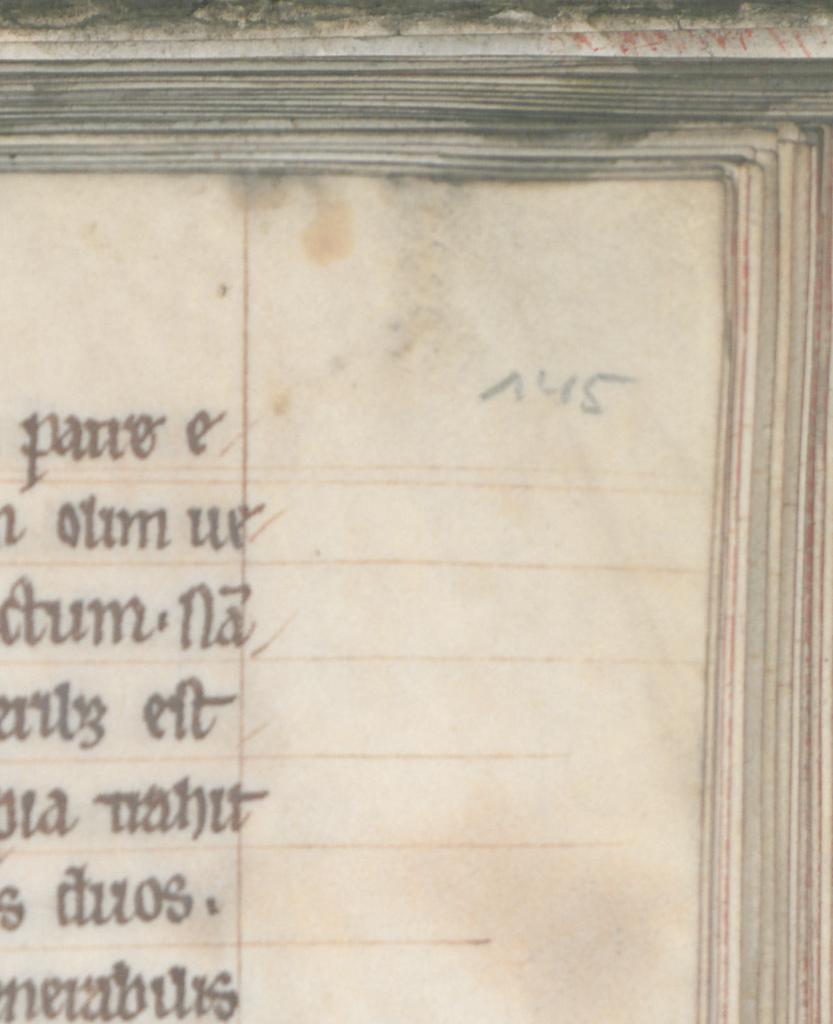 145
patre e
olim ue
ctum. nã
est
trahit
s duos.
enerabilis